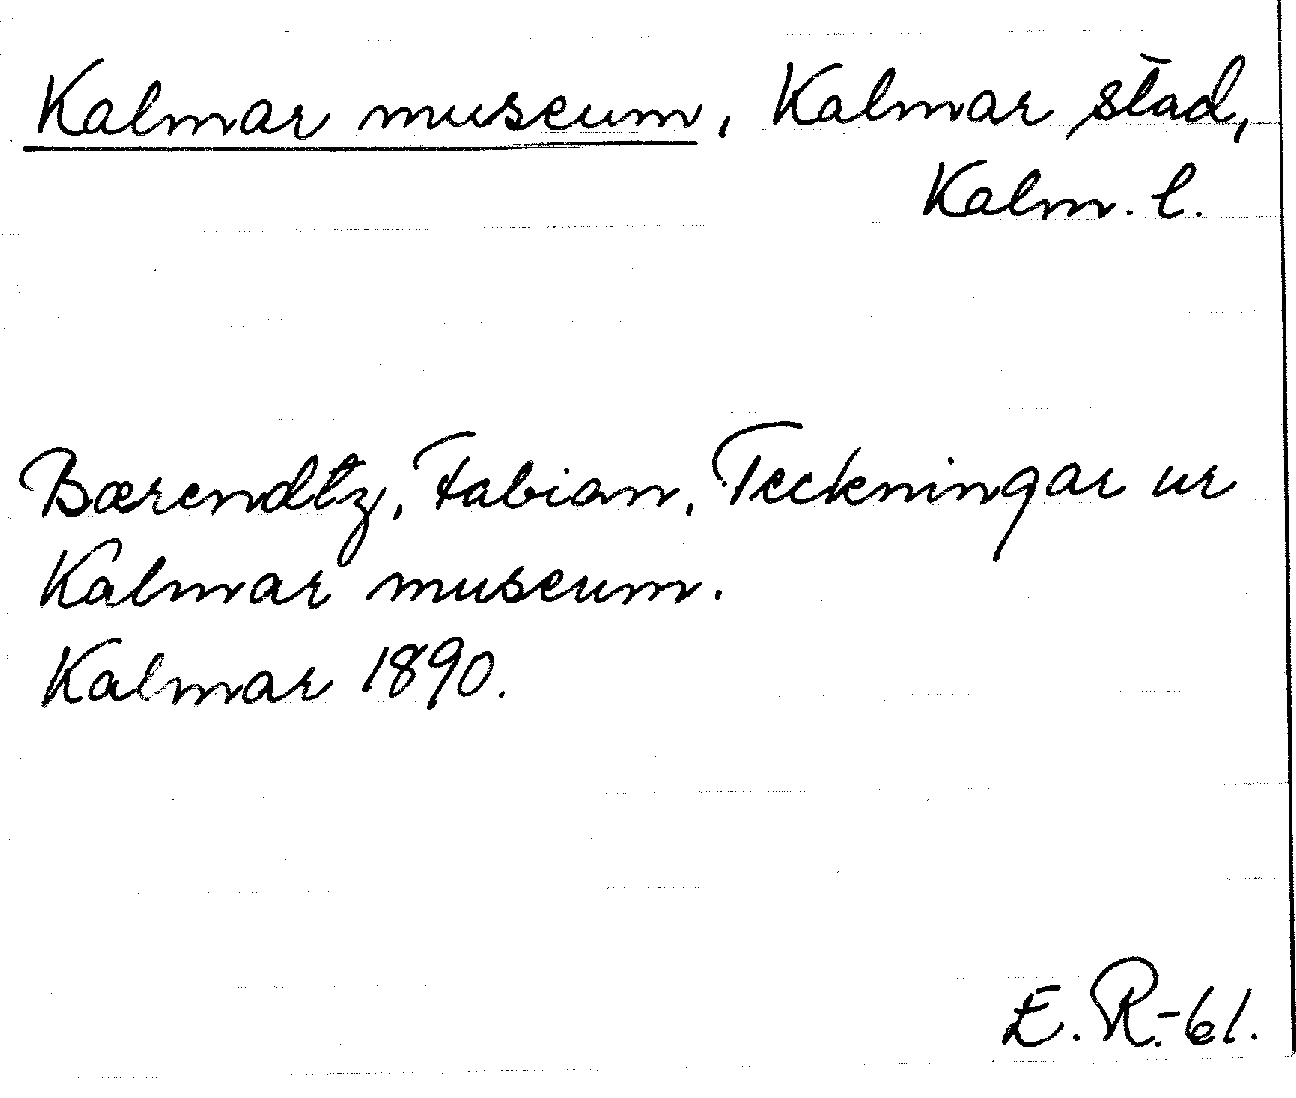 Kalmar museum, Kalmar stad,
Kalm. l.
Bærendtz, Fabian, Teckningar ur
Kalmar museum.
Kalmar 1890.
E. R.-61.